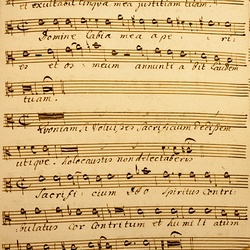 et exultabit lingua mea justitiam tuam.
Domine Labia mea ape ri
es et os meum annunti a bit Laudem
tuam.
Quoniam si Voluisses Sacrificium Dedissem
utique. Holocaustis non delectaberis
Sacrifi cium Deo Spiritus Contri
bulatus Cor Contritum et Humili atum